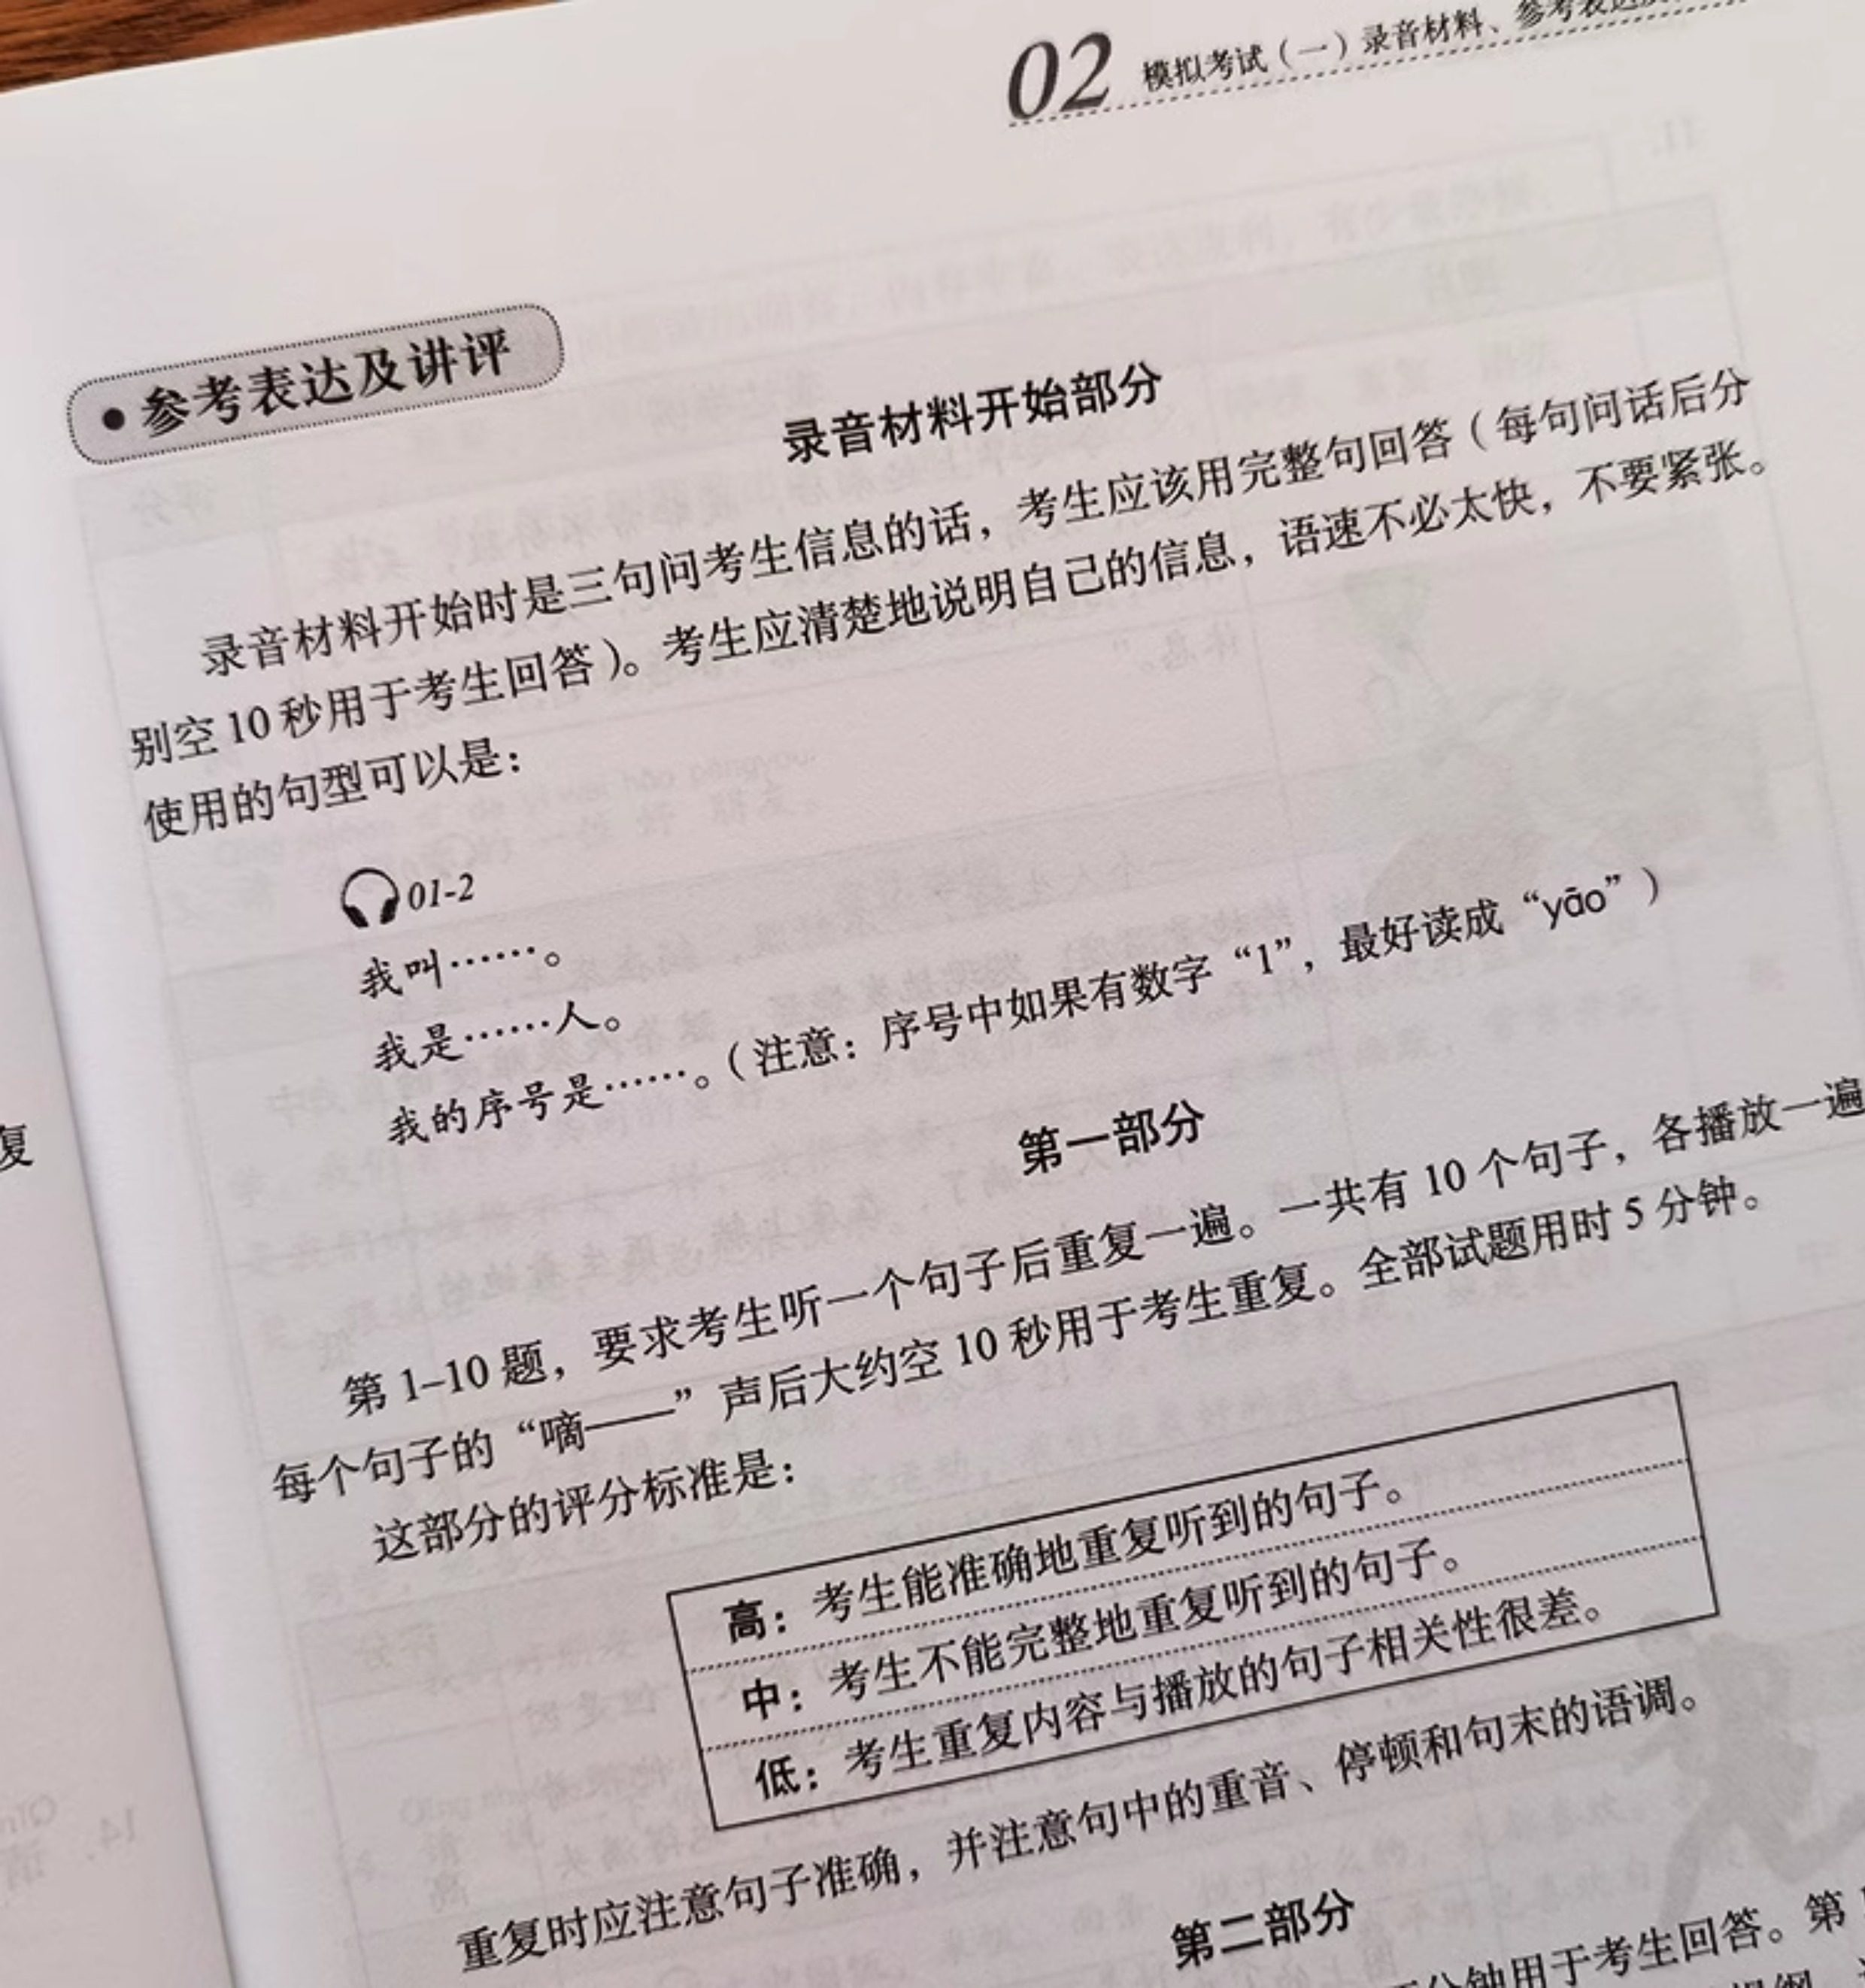 02 模拟考试（一）录音材料、参考表达及
• 参考表达及讲评
录音材料开始部分
录音材料开始时是三句问考生信息的话，考生应该用完整句回答（每句问话后分
别空 10 秒用于考生回答）。考生应清楚地说明自己的信息，语速不必太快，不要紧张。
使用的句型可以是：
01-2
我叫……。
我是……人。
我的序号是……。（注意：序号中如果有数字“1”，最好读成“yāo”）
第一部分
第 1–10 题，要求考生听一个句子后重复一遍。一共有 10 个句子，各播放一遍
每个句子的“嘀——”声后大约空 10 秒用于考生重复。全部试题用时 5 分钟。
这部分的评分标准是：
高：考生能准确地重复听到的句子。
中：考生不能完整地重复听到的句子。
低：考生重复内容与播放的句子相关性很差。
重复时应注意句子准确，并注意句中的重音、停顿和句末的语调。
第二部分
分钟用于考生回答。第
复